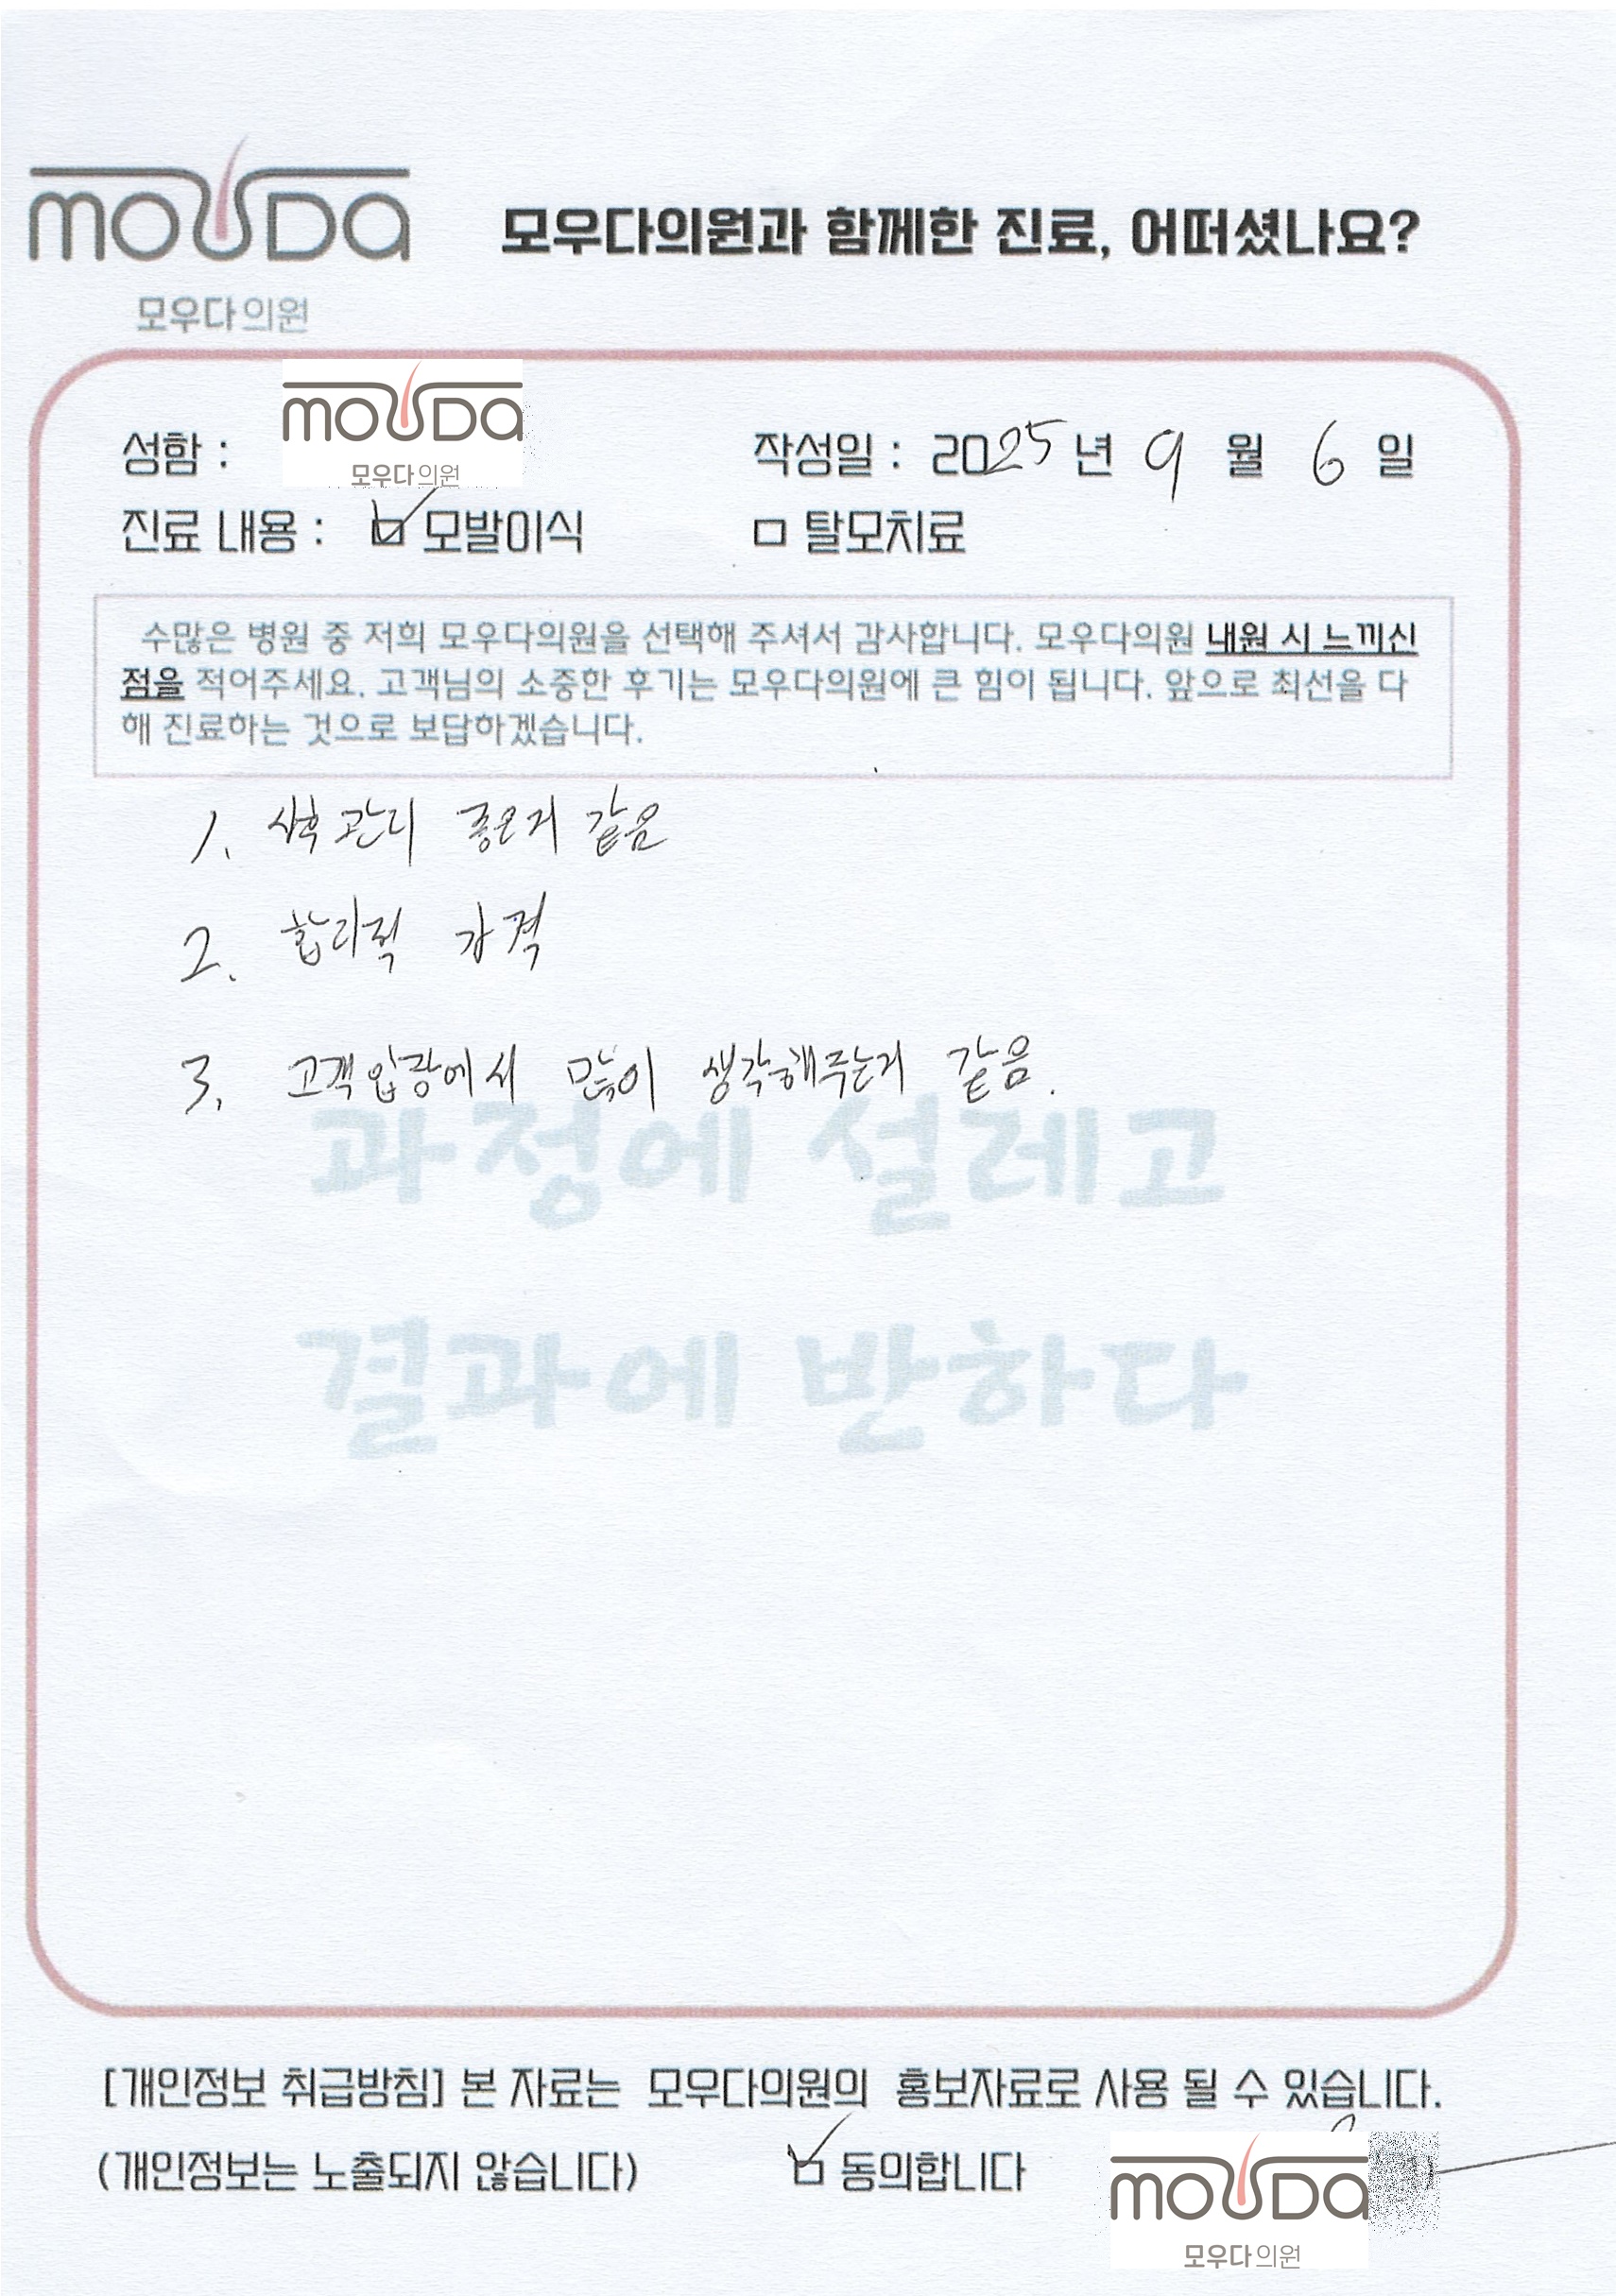 mouDa
모우다의원
모우다의원과 함께한 진료, 어떠셨나요?
mouDa
모우다의원
성함 :
작성일 : 2025 년 9 월 6 일
진료 내용 : ☑ 모발이식 □ 탈모치료
수많은 병원 중 저희 모우다의원을 선택해 주셔서 감사합니다. 모우다의원 내원 시 느끼신
점을 적어주세요. 고객님의 소중한 후기는 모우다의원에 큰 힘이 됩니다. 앞으로 최선을 다
해 진료하는 것으로 보답하겠습니다.
1. 사후관리 좋은거 같음
2. 합리적 가격
3. 고객입장에서 많이 생각해주는거 같음.
과정에 설레고
결과에 반하다
[개인정보 취급방침] 본 자료는 모우다의원의 홍보자료로 사용 될 수 있습니다.
(개인정보는 노출되지 않습니다) ☑ 동의합니다
mouDa
모우다의원